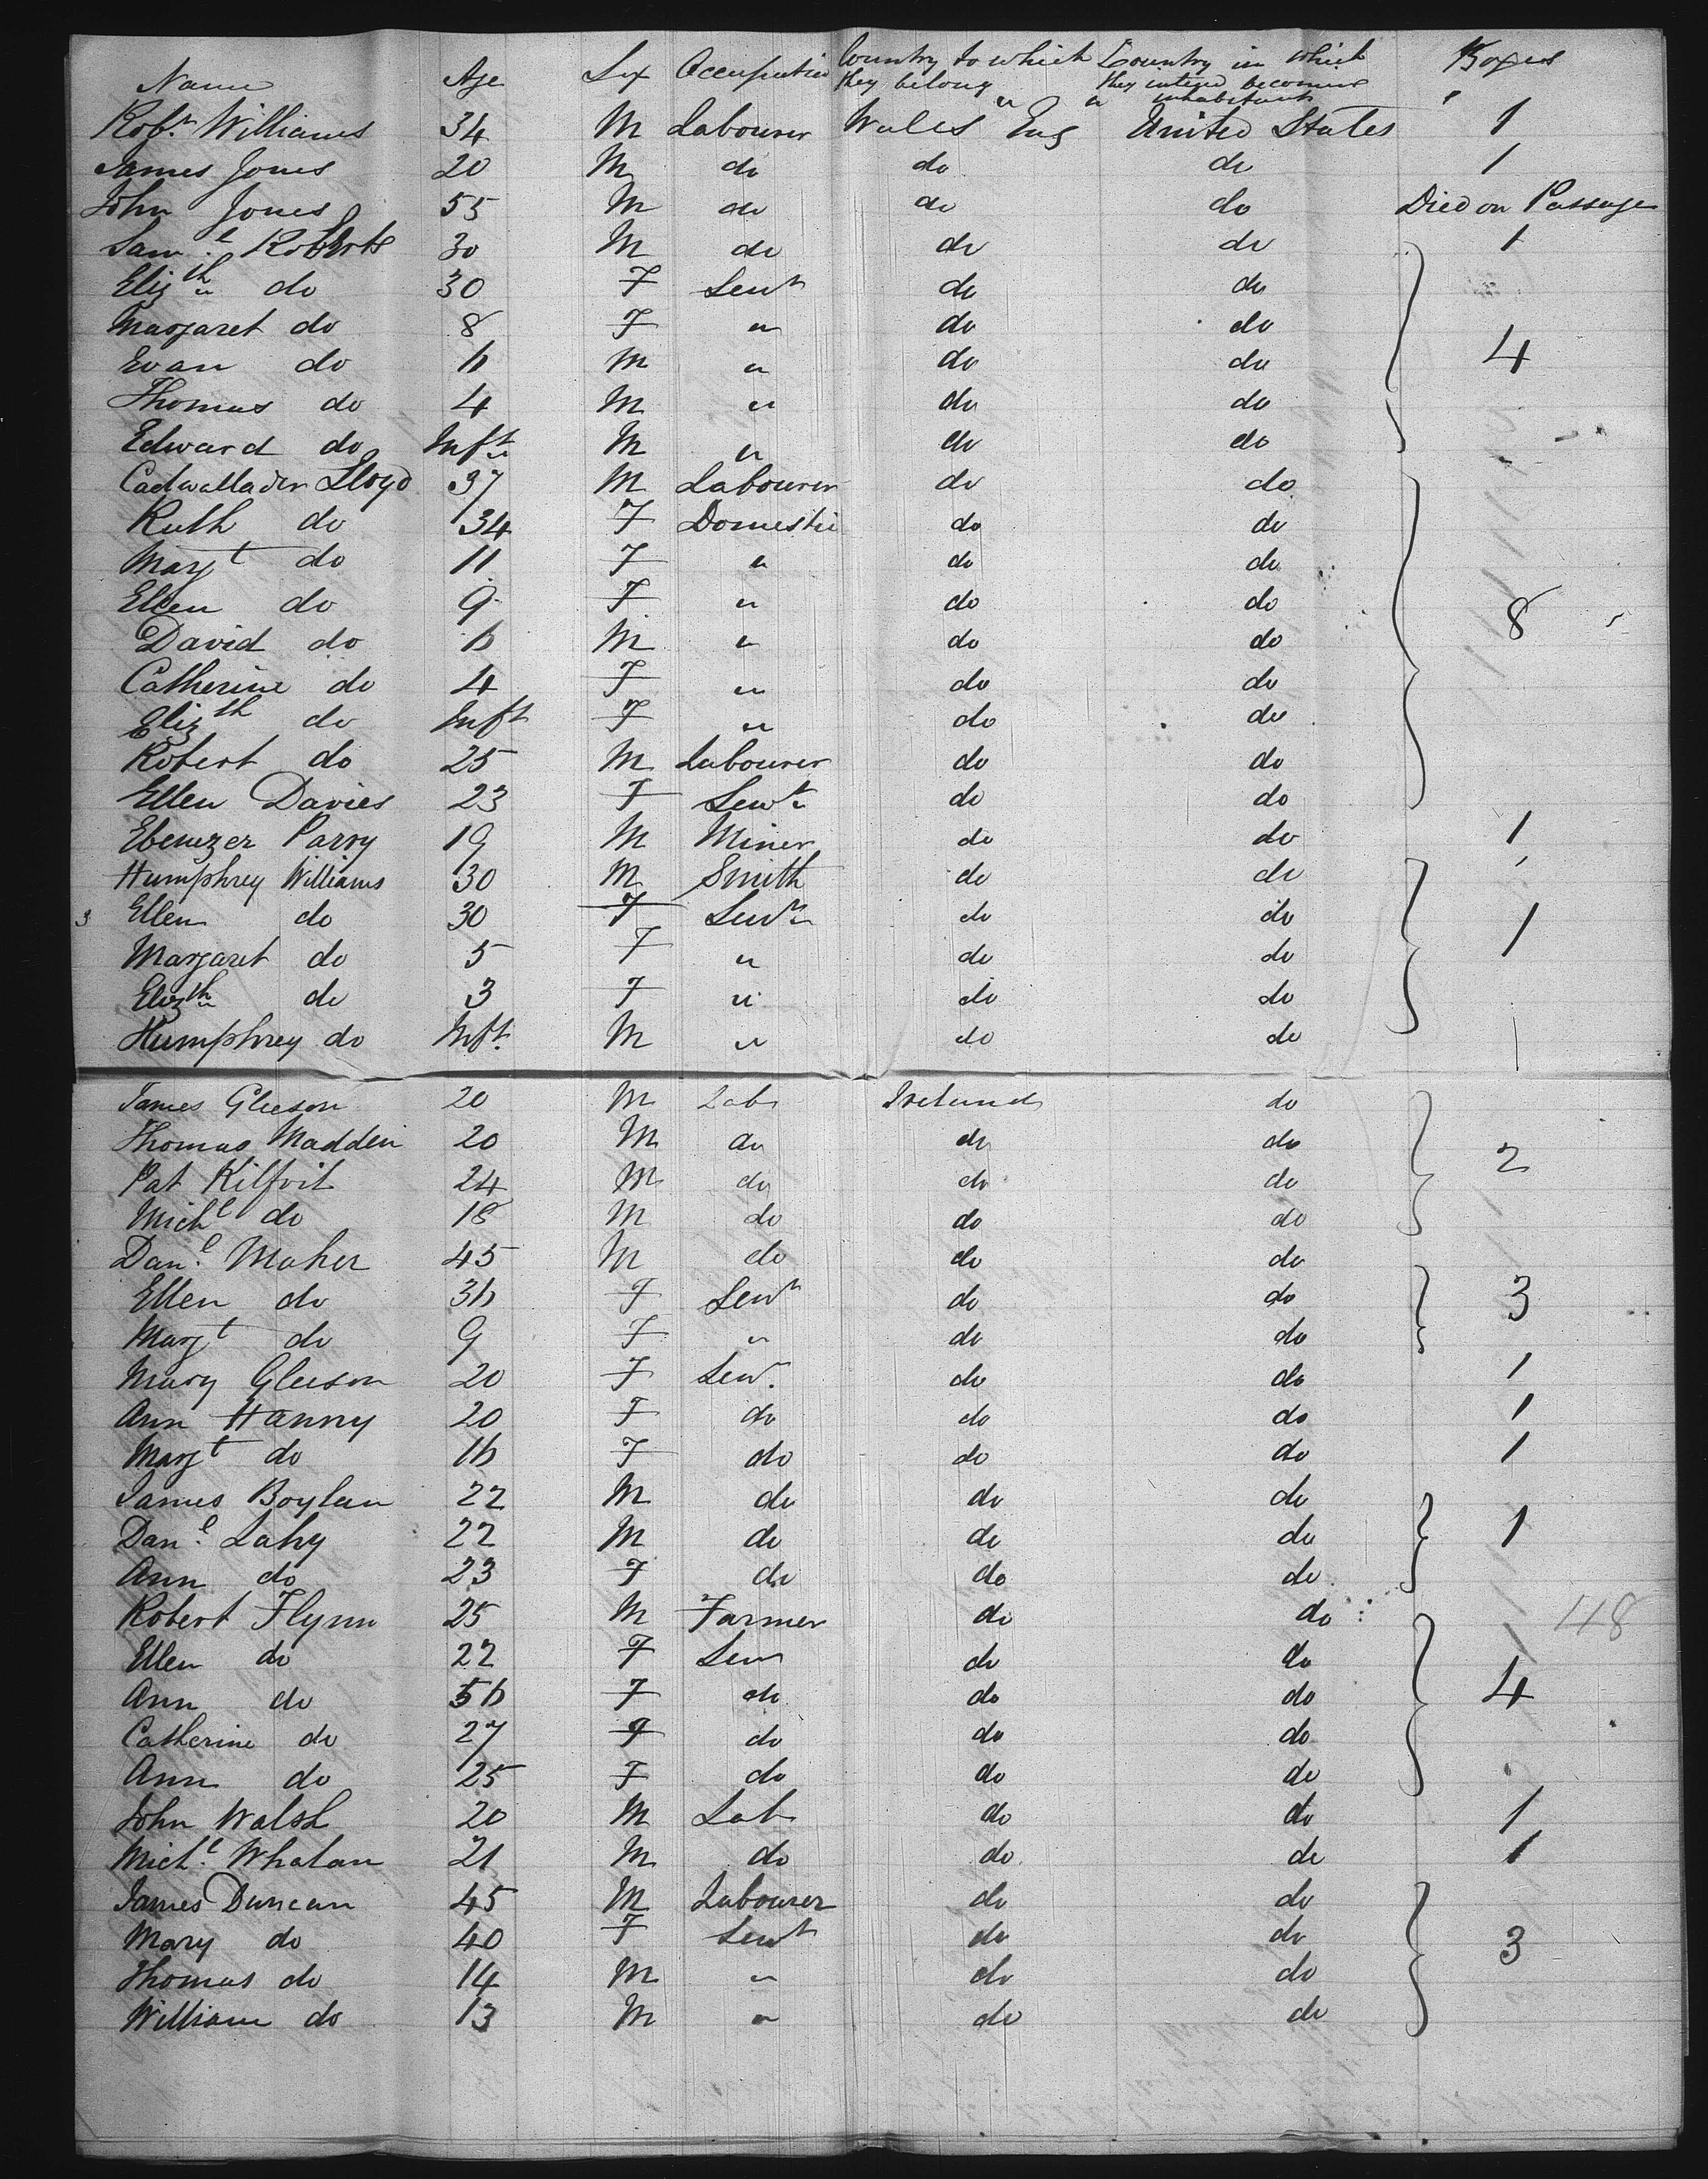 Name Age Sex Occupation Country to which they belong Country in which they intend becoming inhabitants Boxes
Robt. Williams 34 M Labourer Wales Eng United States 1
James Jones 20 M do do do 1
John Jones 55 M do do do Died on Passage
Saml. Roberts 30 M do do do 1
Elizth do 30 F Sewt do do
Margaret do 8 F " do do 4
Evan do 6 M " do do
Thomas do 4 M " do do
Edward do Inft M " do do
Cadwallader Lloyd 37 M Labourer do do
Ruth do 34 F Domestic do do
Margt do 11 F " do do
Ellen do 9 F " do do 8
David do 6 M " do do
Catherine do 4 F " do do
Elizth do Inft F " do do
Robert do 25 M Labourer do do
Ellen Davies 23 F Sewt do do
Ebenezer Parry 19 M Miner do do 1
Humphrey Williams 30 M Smith do do
3 Ellen do 30 F Sewt do do 1
Margaret do 5 F " do do
Elizth do 3 F " do do
Humphrey do Inft. M " do do
James Gleeson 20 M Lab Ireland do
Thomas Madden 20 M do do do 2
Pat Kilfoil 24 M do do do
Michl do 18 M do do do
Danl. Maher 45 M do do do
Ellen do 36 F Sewt do do 3
Margt do 9 F " do do
Mary Gleeson 20 F Sew. do do 1
Ann Hanny 20 F do do do 1
Margt do 16 F do do do 1
James Boylan 22 M do do do
Danl. Lahy 22 M do do do 1
Ann do 23 F do do do
Robert Flynn 25 M Farmer do do 48
Ellen do 22 F Sew do do
Ann do 56 F do do do 4
Catherine do 27 F do do do
Ann do 25 F do do do
John Walsh 20 M Lab do do 1
Michl. Whalan 21 M do do do 1
James Duncan 45 M Labourer do do
Mary do 40 F Sewt do do 3
Thomas do 14 M " do do
William do 13 M " do do